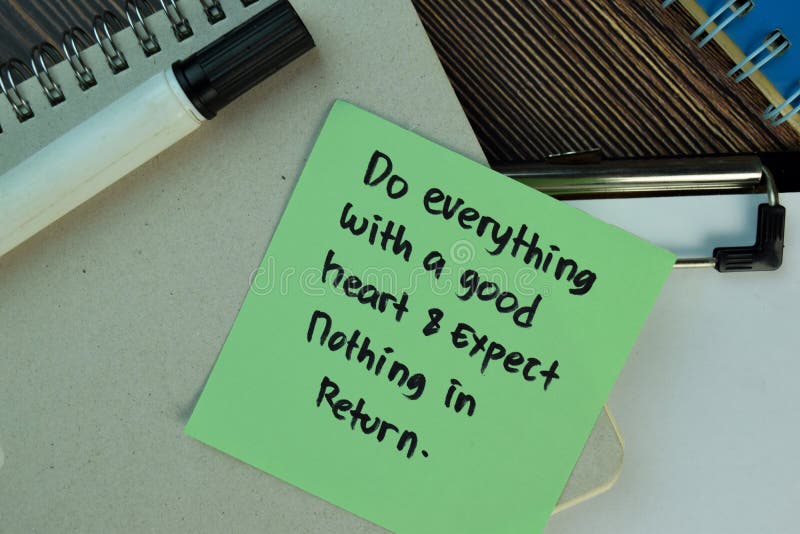 Do everything
with a good
heart & Expect
Nothing in
Return.
dreamstime